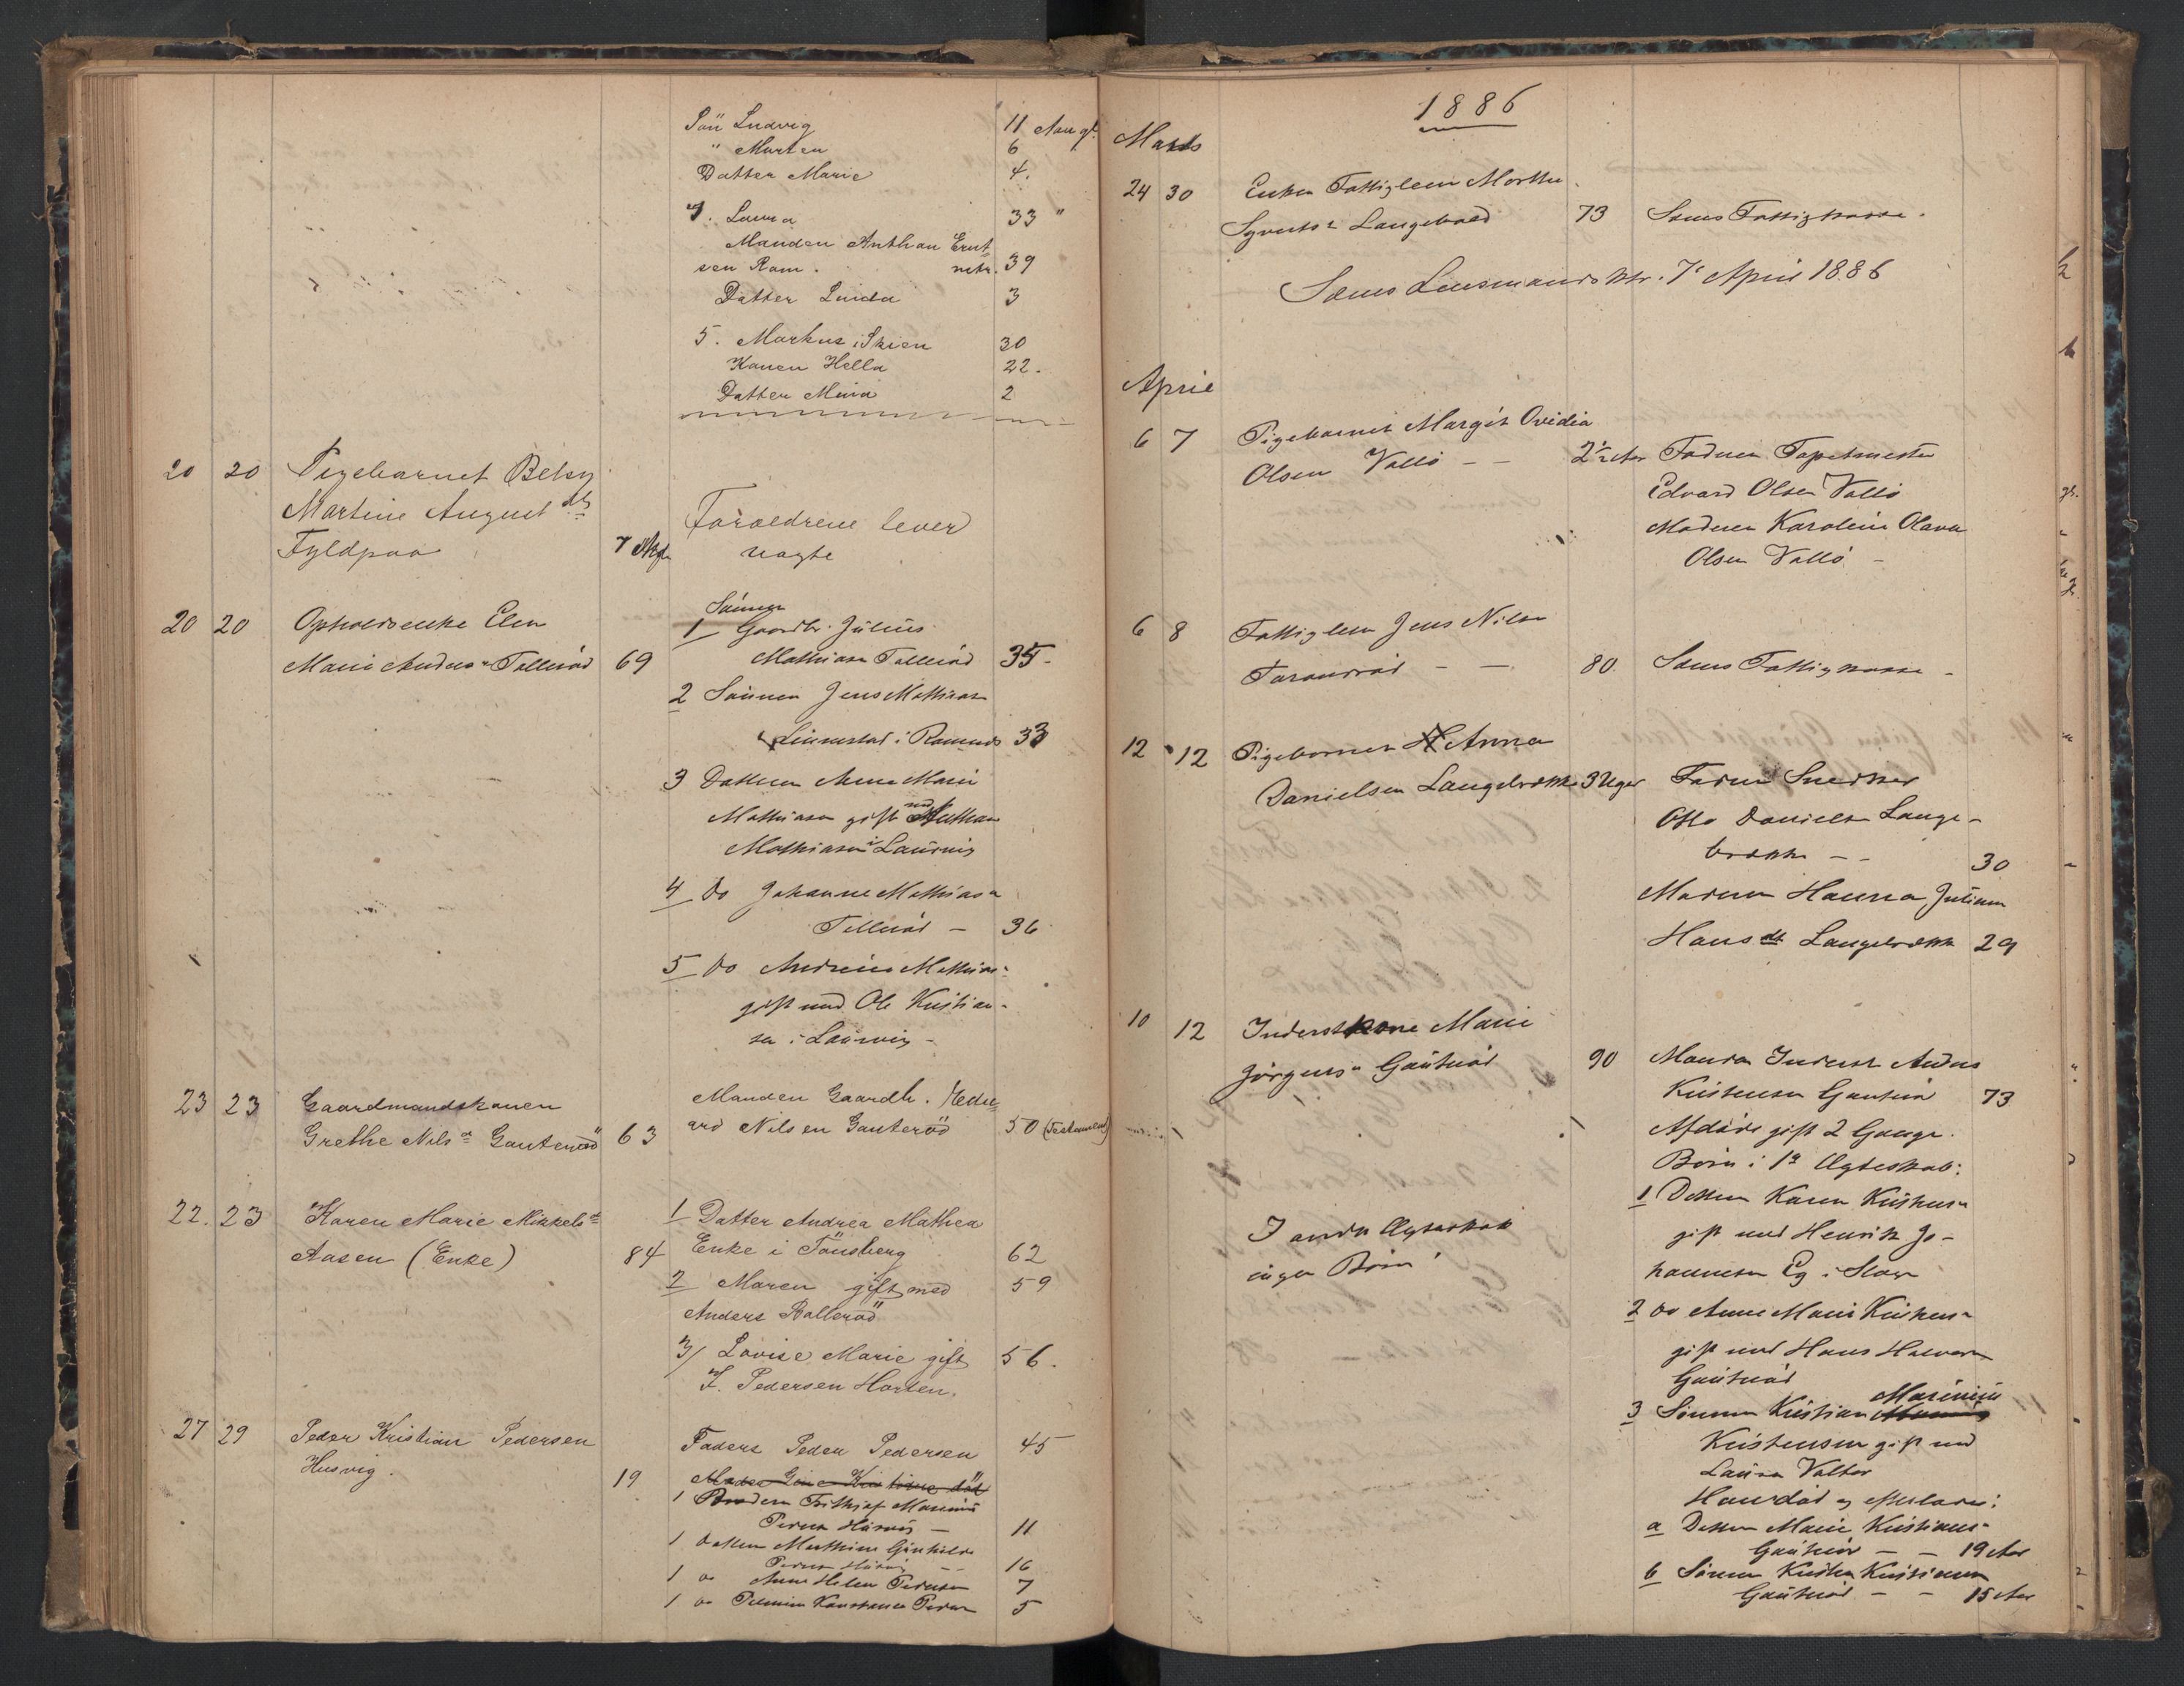 Søn Ludvig 11 Aar gl.
" Morten 6
Datter Marie 4.
4. Laura 33 "
Manden Anthon Ernt
sen Ram. 39
Datter Linda 3
5. Markus i Skien 30
Konen Hella 22.
Datter Mina 2
20 20 Pigebarnet Betsy
Martine August dtr
Fyldpaa 7
Foraeldrene lever
begge
20 20 Opholdsenke Elen
Marie Andersn Tollerød 69
Sønner
1 Gaardbr. Julius
Mathiasen Tollerød 35
2 Sønnen Jens Mathiasn
i Ramnes 33
3 Datteren Anne Marie
Mathiasen gift med Anthon
Mathiasen i Laurvig
4 Do Johanne Mathiasn
Tollerød - 36
5 Do Andrine Mathiasn
gift med Ole Kristian-
sen i Laurvig -
23 23 Gaardmandskonen
Grethe Nilsn Gauterød 63
Manden Gaardb.
ard Nilsen Gauterød 50 (Testament)
22. 23 Karen Marie Mikkelsdt
Aasen (Enke) 84
1 Datter Andrea Mathea
Enke i Tønsberg 62
2 Maren gift med 59
Anders Ballerød
3/ Lovise Marie gift 56.
J. Pedersen Horten.
27 29 Peder Kristian Pedersen
Husvig. 19
Faders Peder Pedersen 45
1 Broderen Frithjof Marinius
Pedersen Husvig - 11
1 Datteren Mathine Gunhilde
Pedersen Husvig - 16
1 do Anne Helene Pedersen 7
1 do Konstance Pedersn 5
1886
Marts
24 30 Enken Fattiglem Marthe
Syvertsn Langevold 73 Sems Fattigkasse.
Sems Lensmandsktr. 7' April 1886
April
6 7 Pigebarnet Margit Ovidia
Olsen Vallø - - 2½ Aar
Faderen Tapetmester
Edvard Olsen Vallø
Moderen Karoline Olava
Olsen Vallø -
6 8 Fattiglem Jens Nilsn
- - 80. Sems Fattigkasse -
12 12 Pigebarnet Anna
Danielsen Langebrække 3 Uger
Faderen Snedker
Otto Danielsn Lange-
brække - - 30
Moderen Hanna Juliane
Hansdt Langebrække 29
10 12 Inderstkone Marie
Jørgensn Gauterød 90
Manden Inderst Anders
Kristensen Gauterød 73
Afdøde gift 2 Gange.
Børn i 1ste Ægteskab:
1 Datteren Karen Kristensn
gift med Henrik Jo-
hannesen Eg i Slagn
2 do Anne Marie Kristensn
gift med Hans Halvorsn
Gauterød
Marinius
3 Sønnen Kristian
Kristensen gift med
Laura Valbor
Han død og efterlader:
a Datteren Marie Kristiansn
Gauterød - - 19 Aar
b Sønnen Kristen Kristiansen
Gauterød - - 15 Aar
I andet Ægteskab
ingen Børn